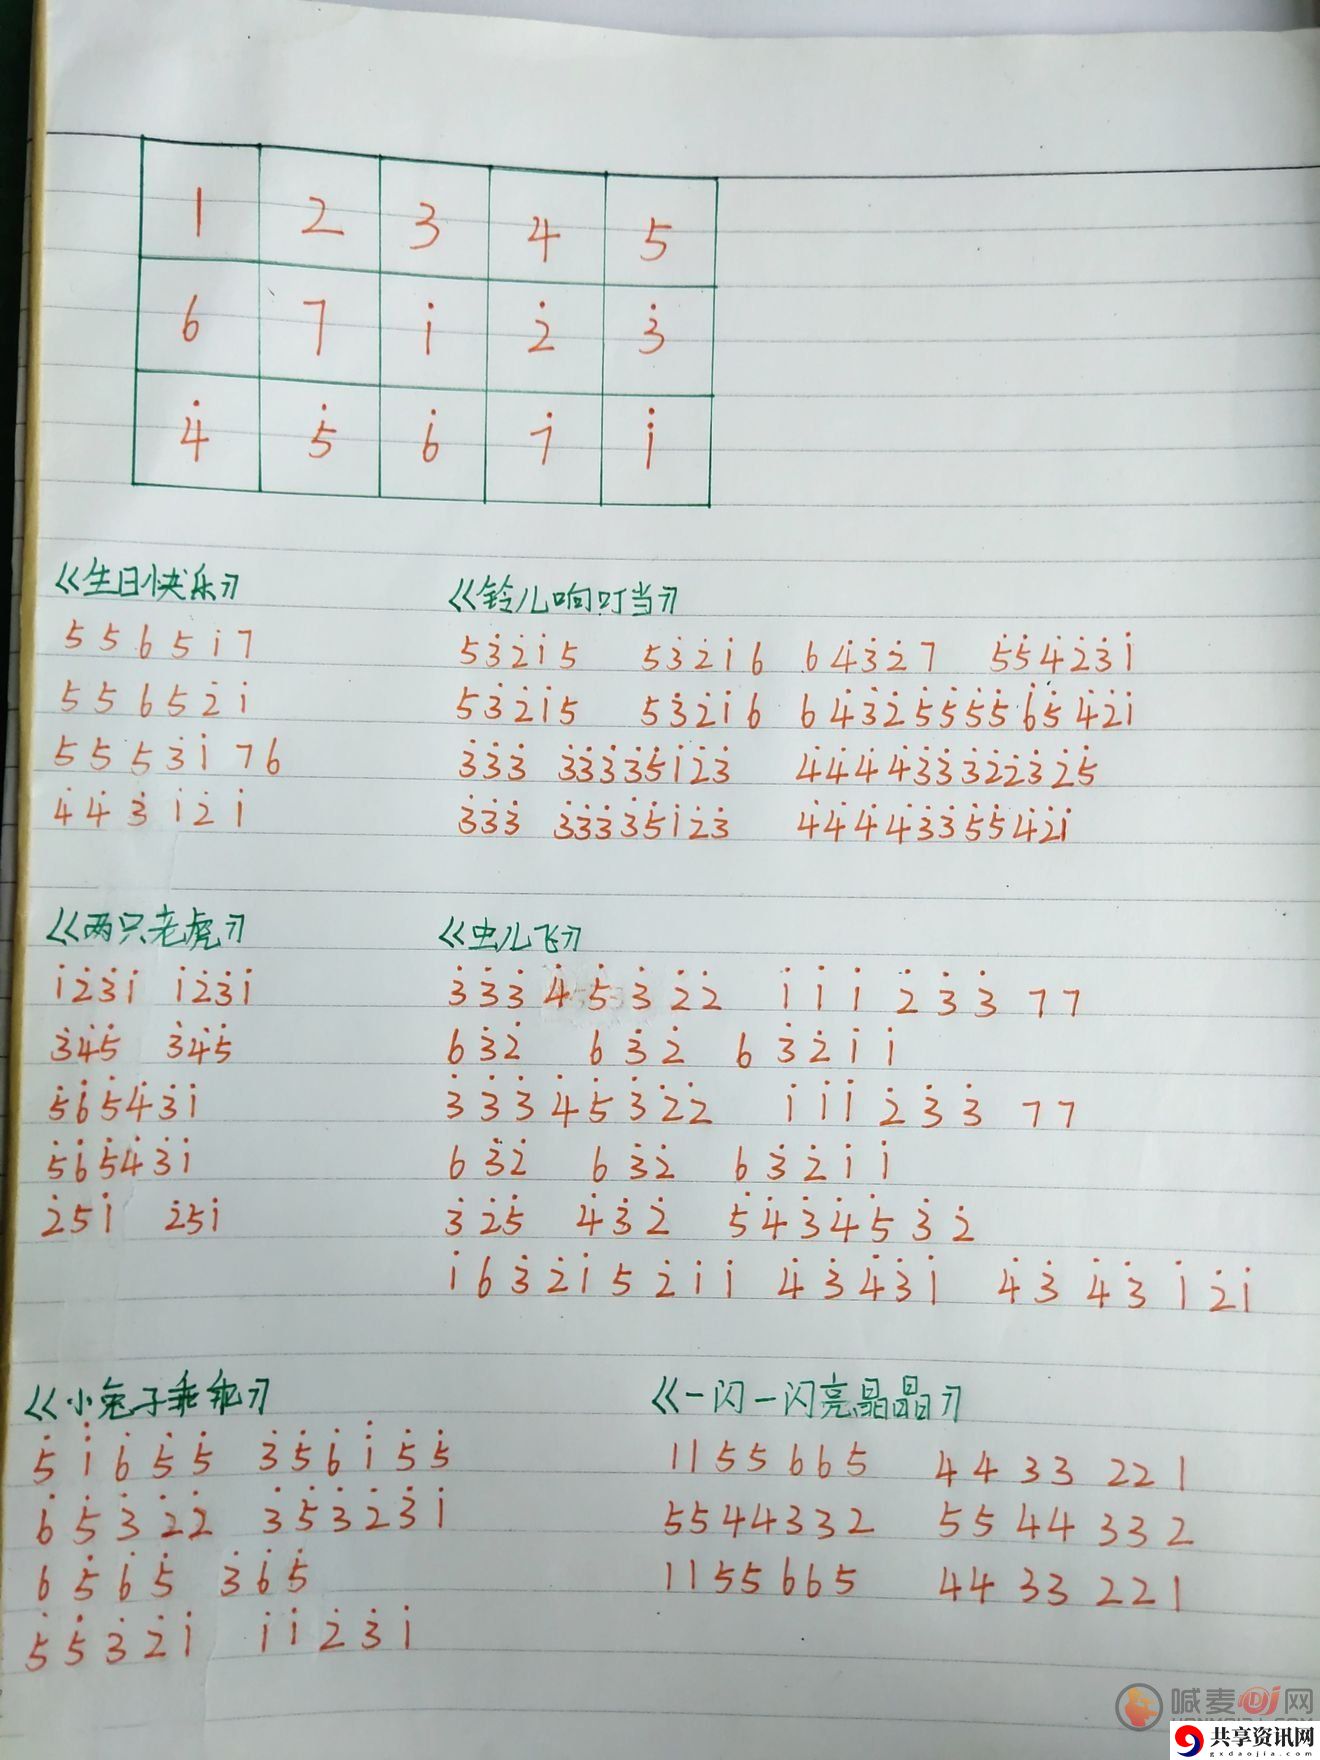 1 2 3 4 5
6 7 1̇ 2̇ 3̇
4̇ 5̇ 6̇ 7̇ 1̈
《生日快乐》
5 5 6 5 1̇ 7
5 5 6 5 2̇ 1̇
5 5 5̇ 3̇ 1̇ 7 6
4̇ 4̇ 3̇ 1̇ 2̇ 1̇
《铃儿响叮当》
5 3̇ 2̇ 1̇ 5 5 3̇ 2̇ 1̇ 6 6 4̇ 3̇ 2̇ 7 5̇ 5̇ 4̇ 2̇ 3̇ 1̇
5 3̇ 2̇ 1̇ 5 5 3̇ 2̇ 1̇ 6 6 4̇ 3̇ 2̇ 5̇ 5̇ 5̇ 5̇ 6̇ 5̇ 4̇ 2̇ 1̇
3̇ 3̇ 3̇ 3̇ 3̇ 3̇ 3̇ 5̇ 1̇ 2̇ 3̇ 4̇ 4̇ 4̇ 4̇ 4̇ 3̇ 3̇ 3̇ 2̇ 2̇ 3̇ 2̇ 5̇
3̇ 3̇ 3̇ 3̇ 3̇ 3̇ 3̇ 5̇ 1̇ 2̇ 3̇ 4̇ 4̇ 4̇ 4̇ 4̇ 3̇ 3̇ 5̇ 5̇ 4̇ 2̇ 1̇
《两只老虎》
1̇ 2̇ 3̇ 1̇ 1̇ 2̇ 3̇ 1̇
3̇ 4̇ 5̇ 3̇ 4̇ 5̇
5̇ 6̇ 5̇ 4̇ 3̇ 1̇
5̇ 6̇ 5̇ 4̇ 3̇ 1̇
2̇ 5 1̇ 2̇ 5 1̇
《虫儿飞》
3̇ 3̇ 3̇ 4̇ 5̇ 3̇ 2̇ 2̇ 1̇ 1̇ 1̇ 2̇ 3̇ 3̇ 7 7
6 3̇ 2̇ 6 3̇ 2̇ 6 3̇ 2̇ 1̇ 1̇
3̇ 3̇ 3̇ 4̇ 5̇ 3̇ 2̇ 2̇ 1̇ 1̇ 1̇ 2̇ 3̇ 3̇ 7 7
6 3̇ 2̇ 6 3̇ 2̇ 6 3̇ 2̇ 1̇ 1̇
3̇ 2̇ 5̇ 4̇ 3̇ 2̇ 5̇ 4̇ 3̇ 4̇ 5̇ 3̇ 2̇
1̇ 6 3̇ 2̇ 1̇ 5 2̇ 1̇ 1̇ 4̇ 3̇ 4̇ 3̇ 1̇ 4̇ 3̇ 4̇ 3̇ 1̇ 2̇ 1̇
《小兔子乖乖》
5̇ 1̈ 6̇ 5̇ 5̇ 3̇ 5̇ 6̇ 1̇ 5̇ 5̇
6̇ 5̇ 3̇ 2̇ 2̇ 3̇ 5̇ 3̇ 2̇ 3̇ 1̇
6 5̇ 6̇ 5̇ 3̇ 6̇ 5̇
5̇ 5̇ 3̇ 2̇ 1̇ 1̇ 1̇ 2̇ 3̇ 1̇
《一闪一闪亮晶晶》
1 1 5 5 6 6 5 4 4 3 3 2 2 1
5 5 4 4 3 3 2 5 5 4 4 3 3 2
1 1 5 5 6 6 5 4 4 3 3 2 2 1
喊麦DJ网
共享资讯网
gxdaojia.com